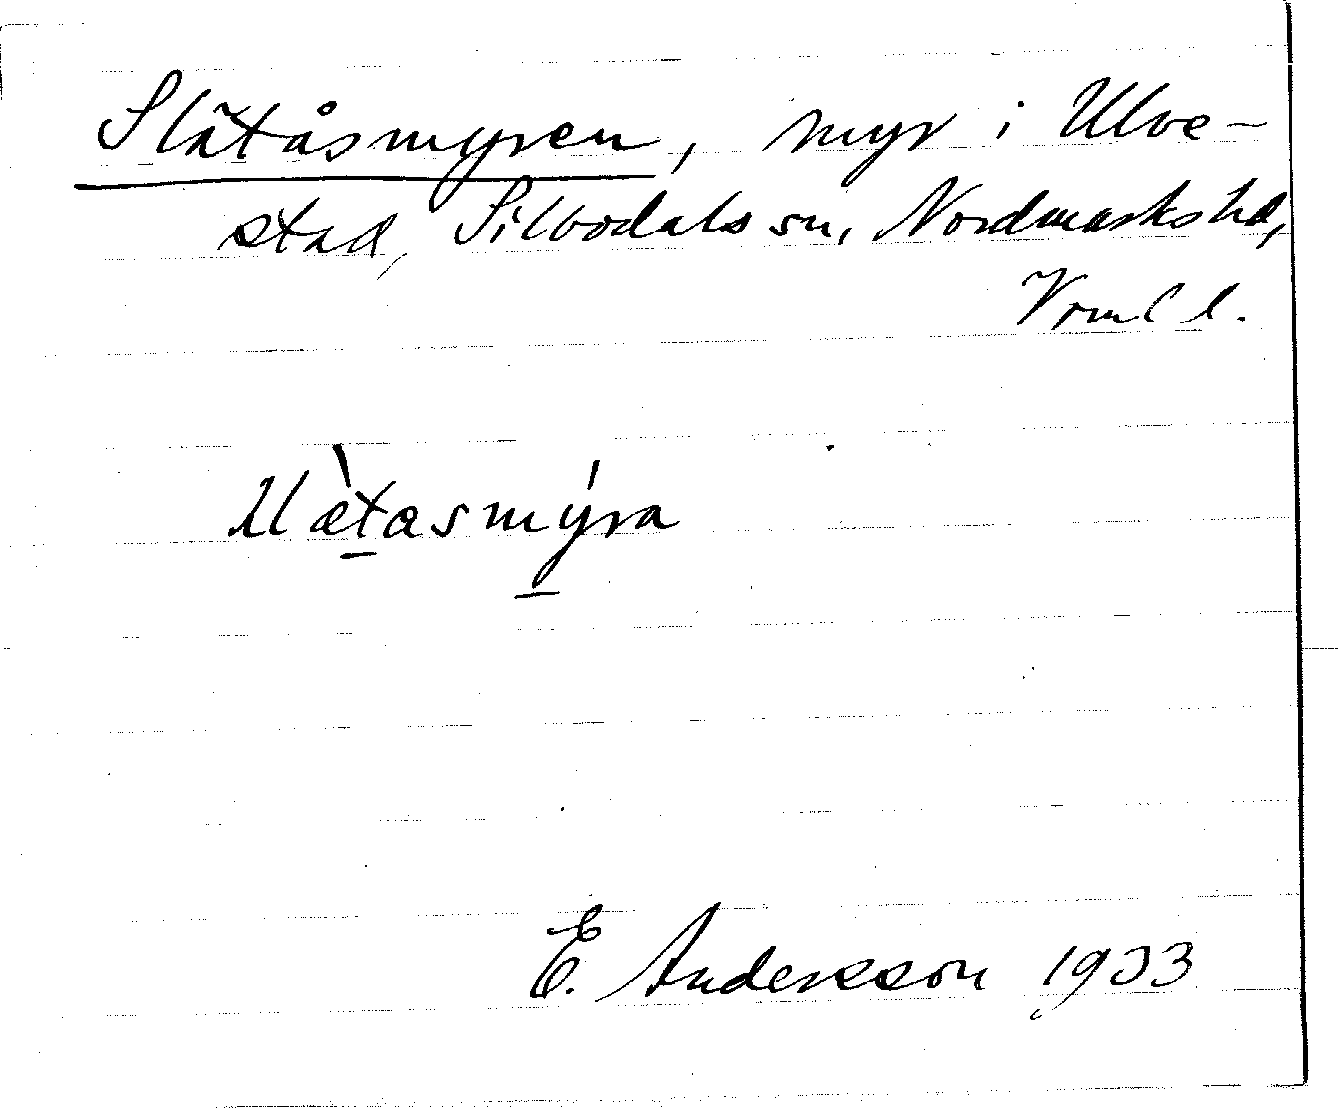 Slätåsmyren, myr i Ulve-
stad, Silbodals sn, Nordmarks hd,
Vrml l.
slæ̀tasmýra
E. Andersson 1933